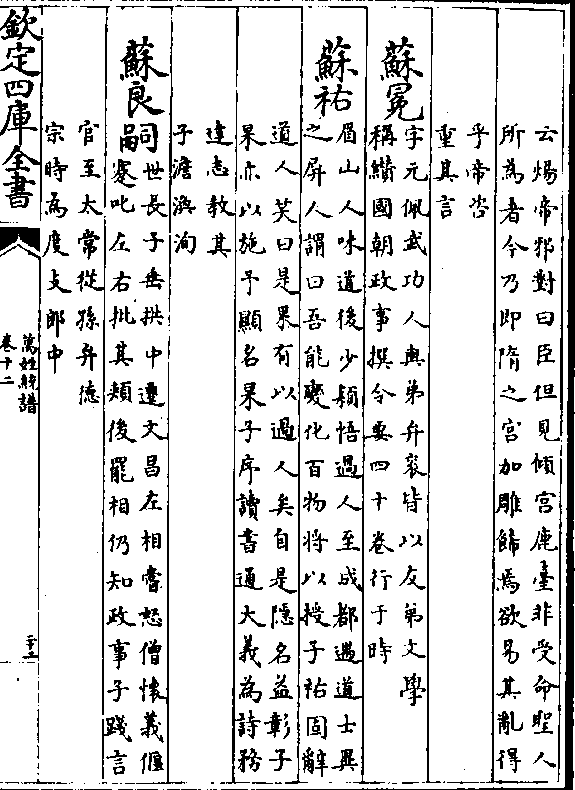 云煬帝邪對曰臣但見傾宮鹿臺非受命聖人
所為者今乃即隋之宮加雕飾焉欲易其亂得
乎帝咨
重其言
蘇冕
字元佩武功人與弟弁袞皆以友弟文學
稱纘國朝政事撰㑹要四十卷行于時
蘇祐
眉山人味道後少穎悟過人至成都遇道士異
之屏人謂曰吾能變化百物將以授子祐固辭
道人笑曰是果有以過人矣自是隱名益彰子
杲亦以施予顯名杲子序讀書通大義為詩務
達志教其
子澹渙洵
蘇良嗣
世長子垂拱中遷文昌左相嘗怒僧懐義偃
蹇叱左右批其頰後罷相仍知政事子踐言
官至太常從孫弁德
宗時為度支郎中
欽定四庫全書
萬姓統譜
卷十二